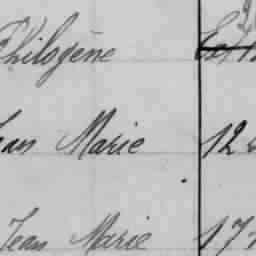 Philogène
Jean Marie 12
Jean Marie 17